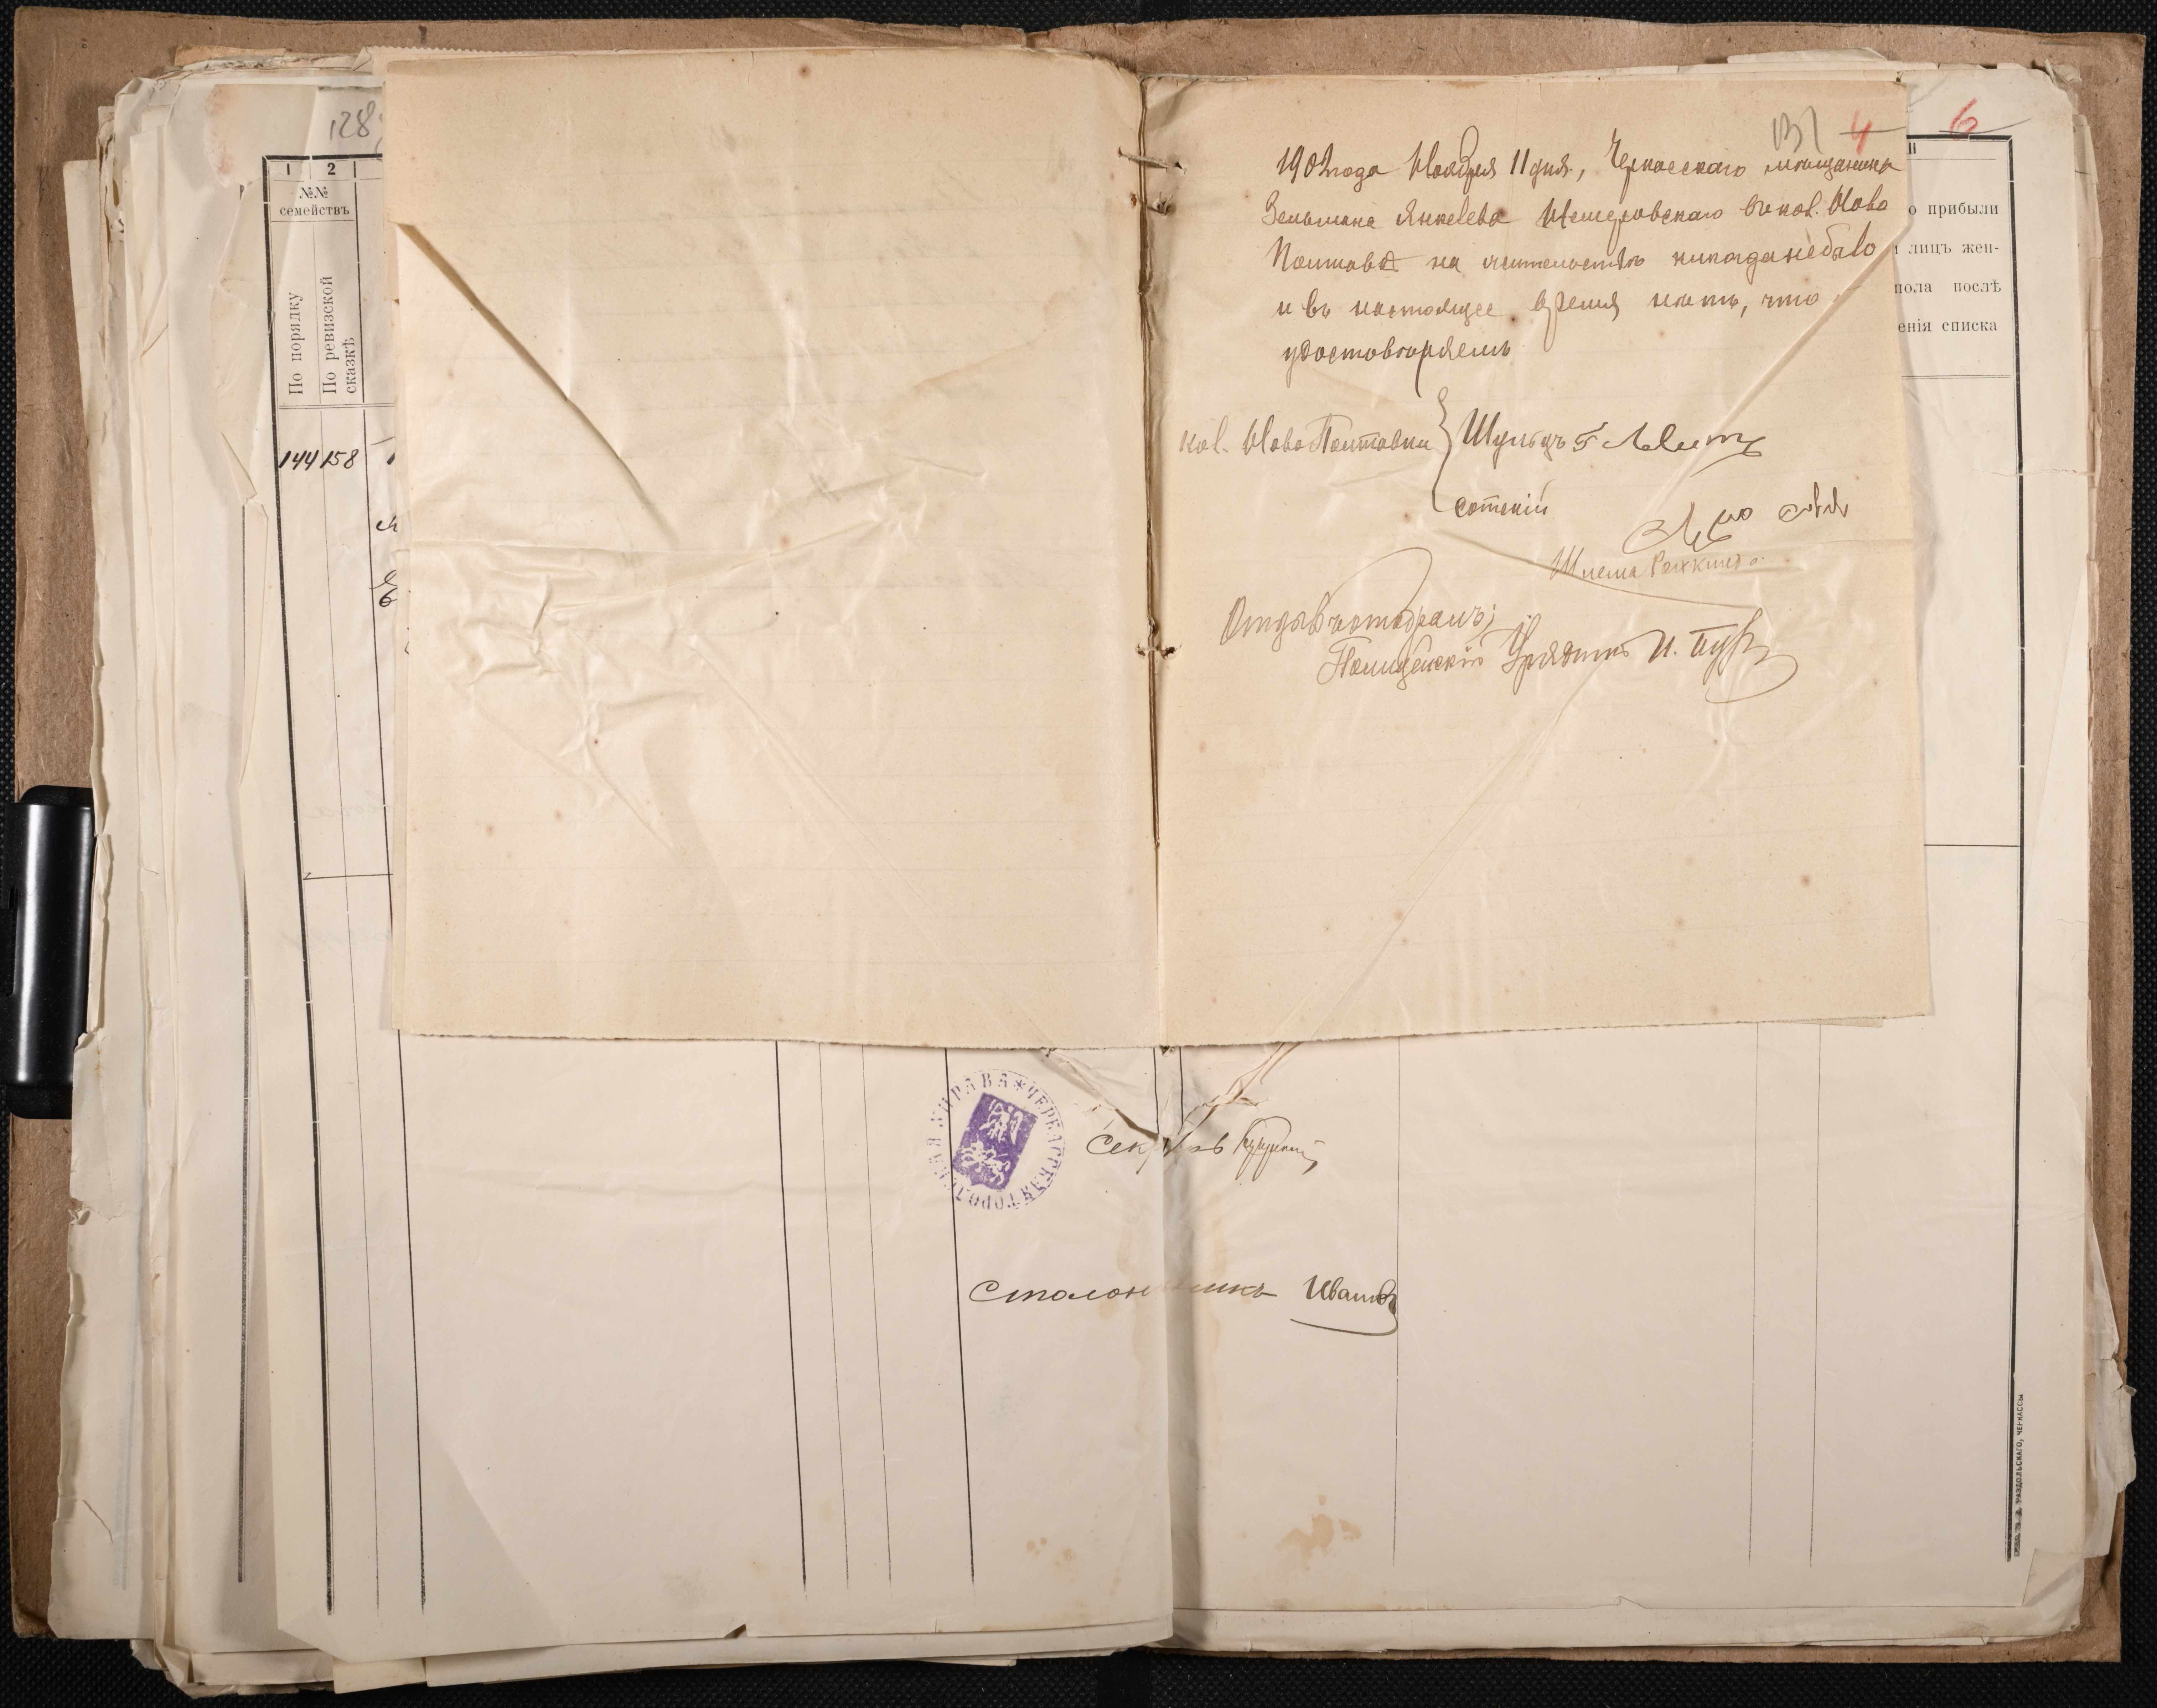 128
1 2
№№
семействъ
По порядку
По ревизской
сказкѣ
144 158
131 4 6
11
1902 года Ноября 11 дня, Черкасскаго мѣщанина
Зельмана Янкелева въ кол. Ново
Полтавкѣ на жительствѣ никогда не было
и въ настоящее время нѣтъ, что
удостовѣряемъ
кол. Ново Полтавки } Шульцъ Г Левитъ
сотскій
Шлема
Отзывъ отобралъ;
Полицейскій Урядникъ И.
о прибыли
лицъ жен-
пола послѣ
енія списка
ЧЕРКАССКАЯ ГОРОДСКАЯ УПРАВА
Сек въ
Столон икъ Ивановъ
РАЗДОЛЬСКАГО, ЧЕРКАССЫ